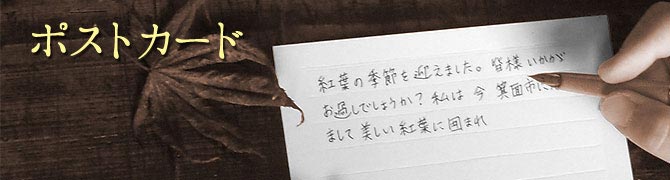 ポストカード
紅葉の季節を迎えました。皆様いかが
お過しでしょうか？私は今箕面市に
まして美しい紅葉に囲まれ